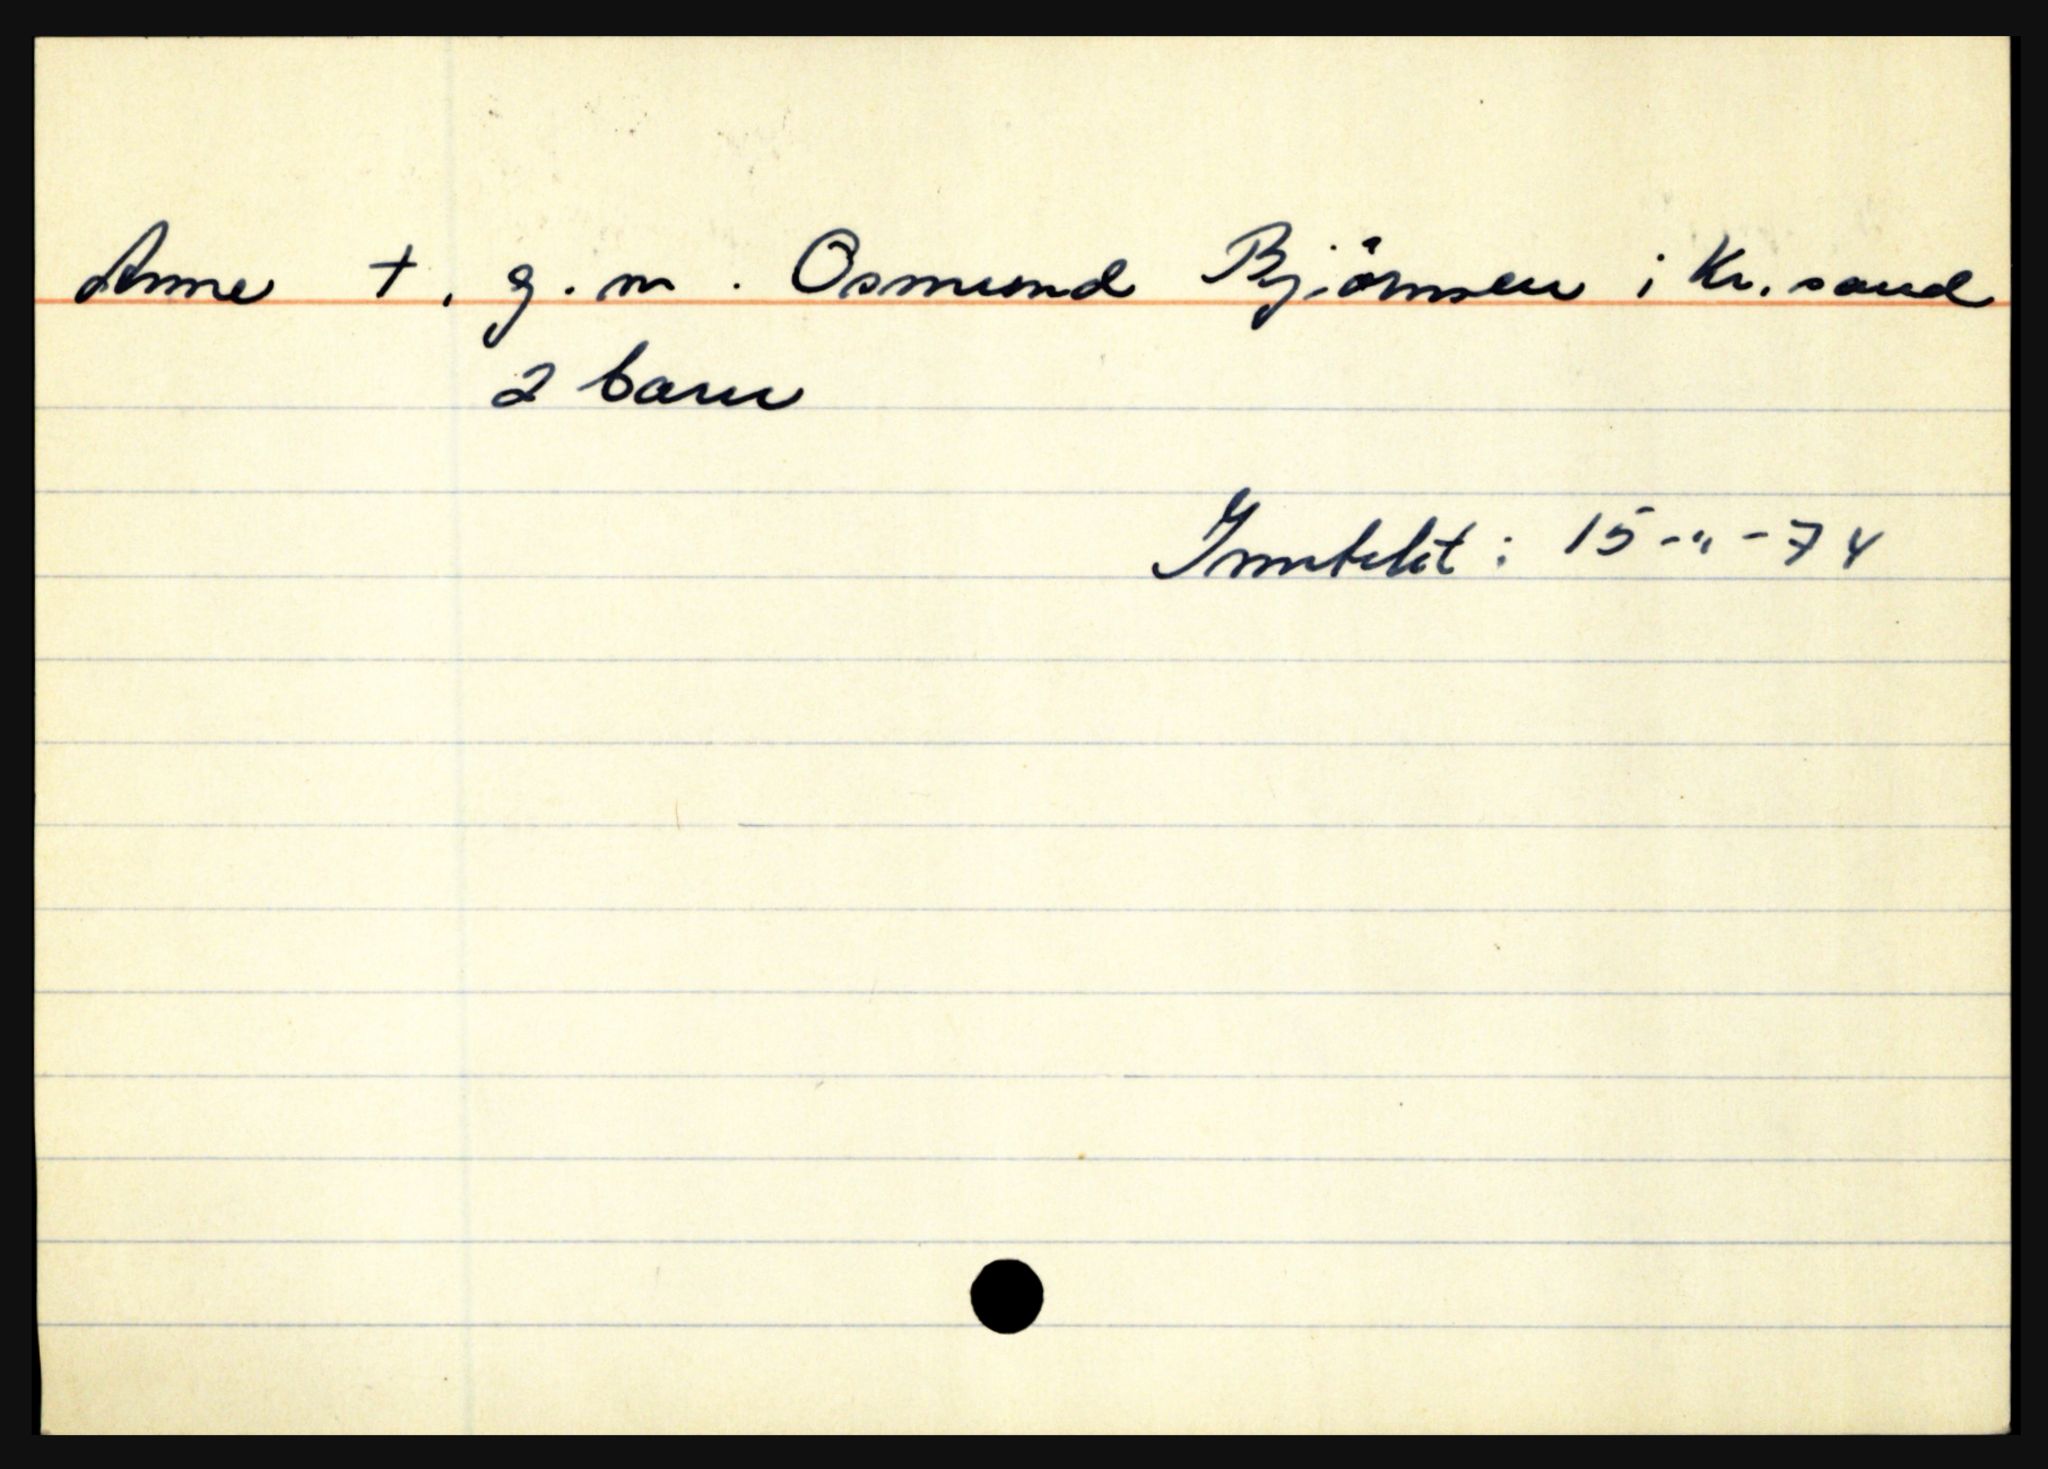 Anne †, g.m. Osmund Björnsen i Kr.sand
2 barn
Inntekt: 15-"-74